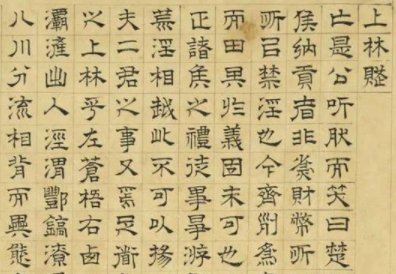 上林賦
亡是公听肰而笑曰楚
矦納貢者非為財幣所
所㠯禁淫也今齊列為
而田其於義固未可也
正諸矦之禮徒事爭游
荒淫相越此不可以揚
夫二君之事又焉足道
之上林乎左蒼梧右西
灞滻出入涇渭酆鎬潦
八川分流相背而異態